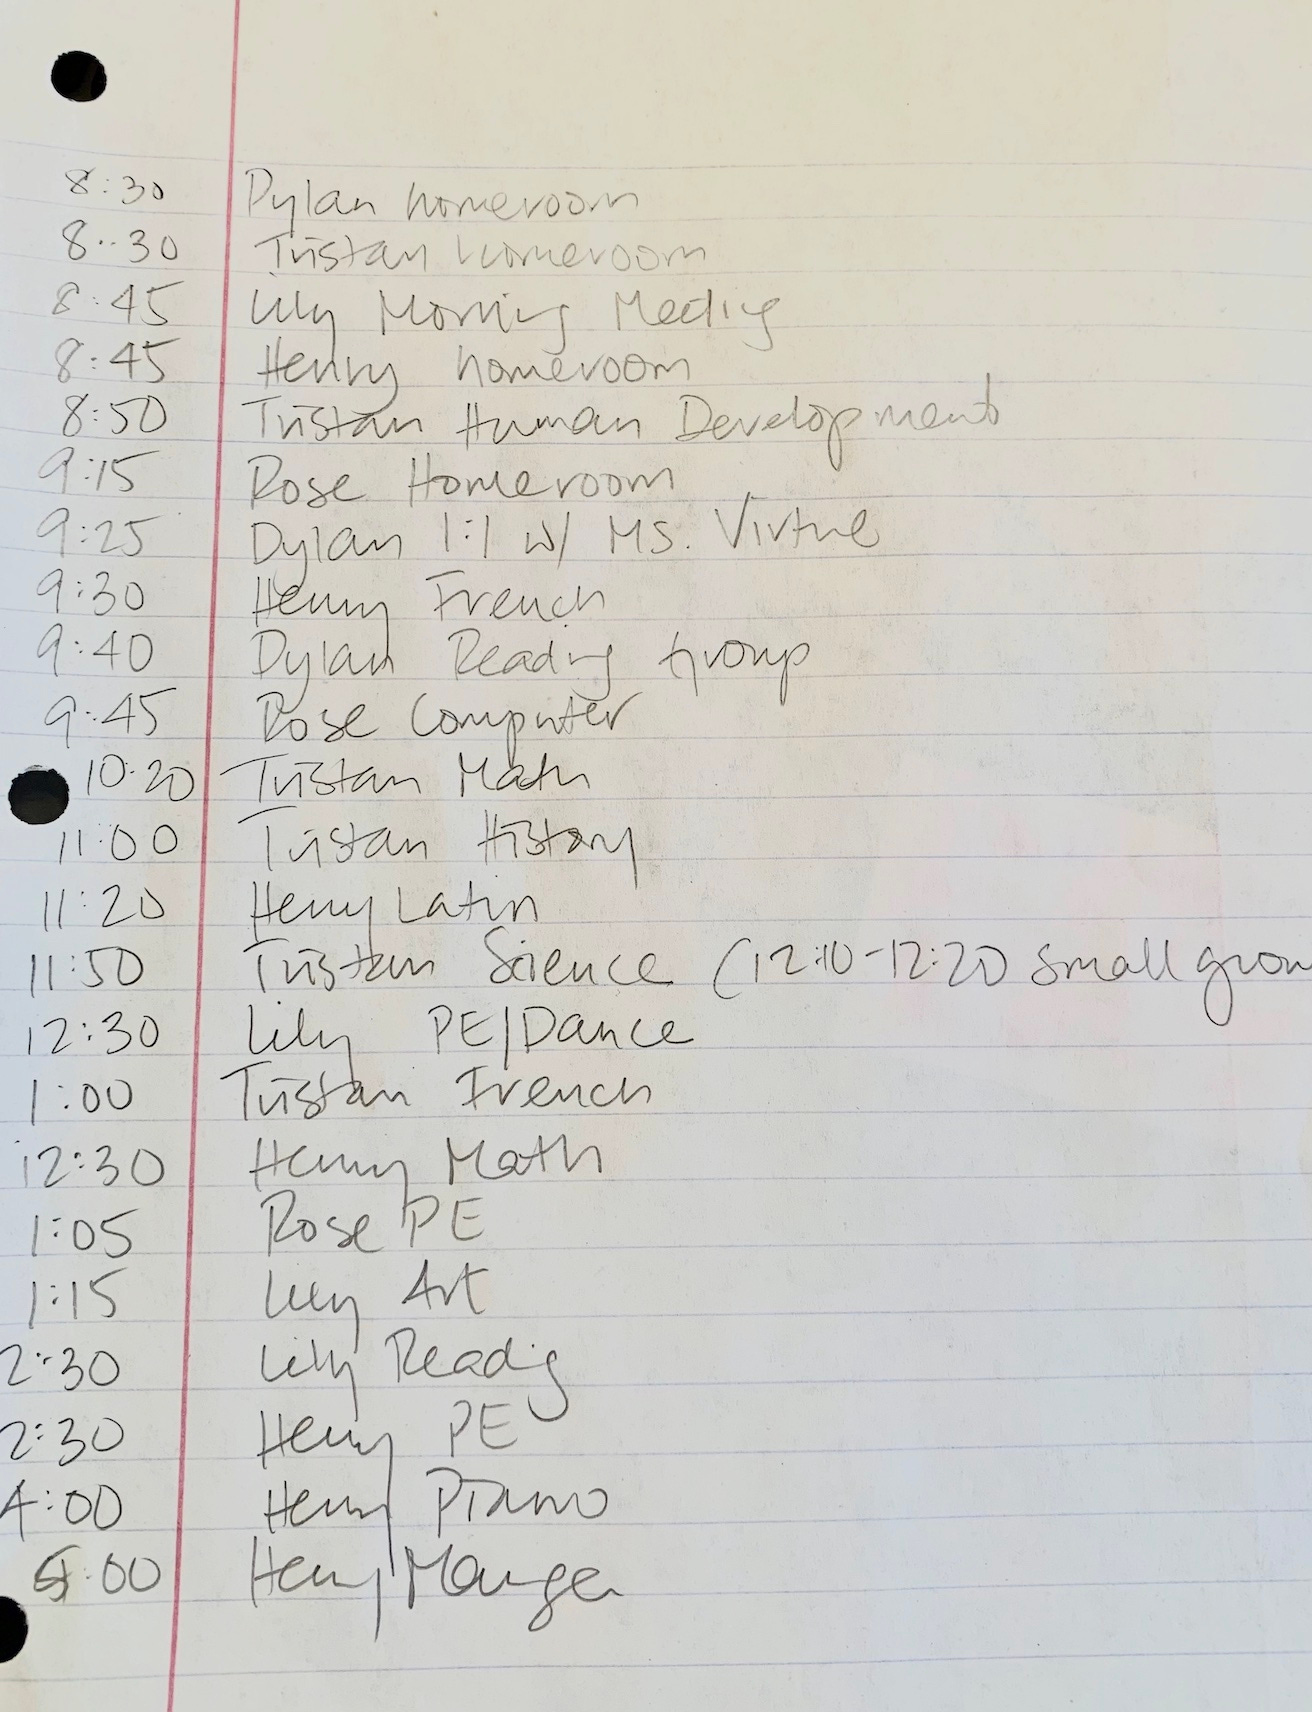 8:30 Dylan homeroom
8:30 Tristan homeroom
8:45 Lily Morning Meeting
8:45 Henry homeroom
8:50 Tristan Human Development
9:15 Rose Homeroom
9:25 Dylan 1:1 w/ Ms. Virtue
9:30 Henry French
9:40 Dylan Reading group
9:45 Rose Computer
10:20 Tristan Math
11:00 Tristan History
11:20 Henry Latin
11:50 Tristan Science (12:10-12:20 small grou
12:30 Lily PE/Dance
1:00 Tristan French
12:30 Henry Math
1:05 Rose PE
1:15 Lily Art
2:30 Lily Reading
2:30 Henry PE
4:00 Henry Piano
5:00 Henry